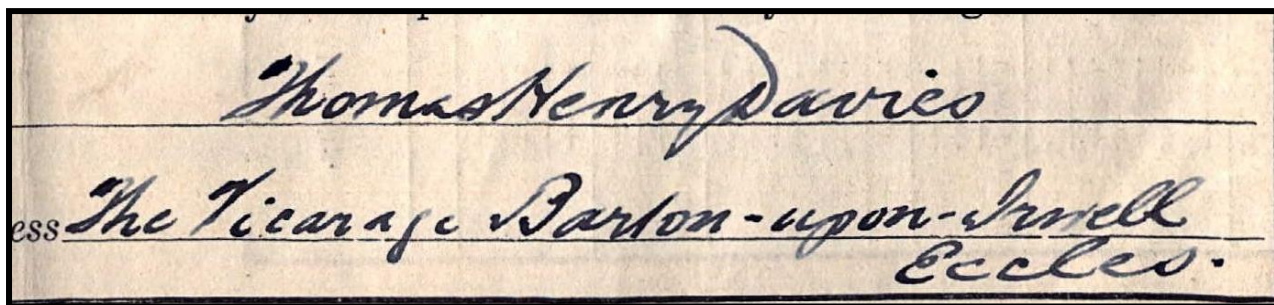 Thomas Henry Davies
ess The Vicarage Barton-upon-Irwell
Eccles.